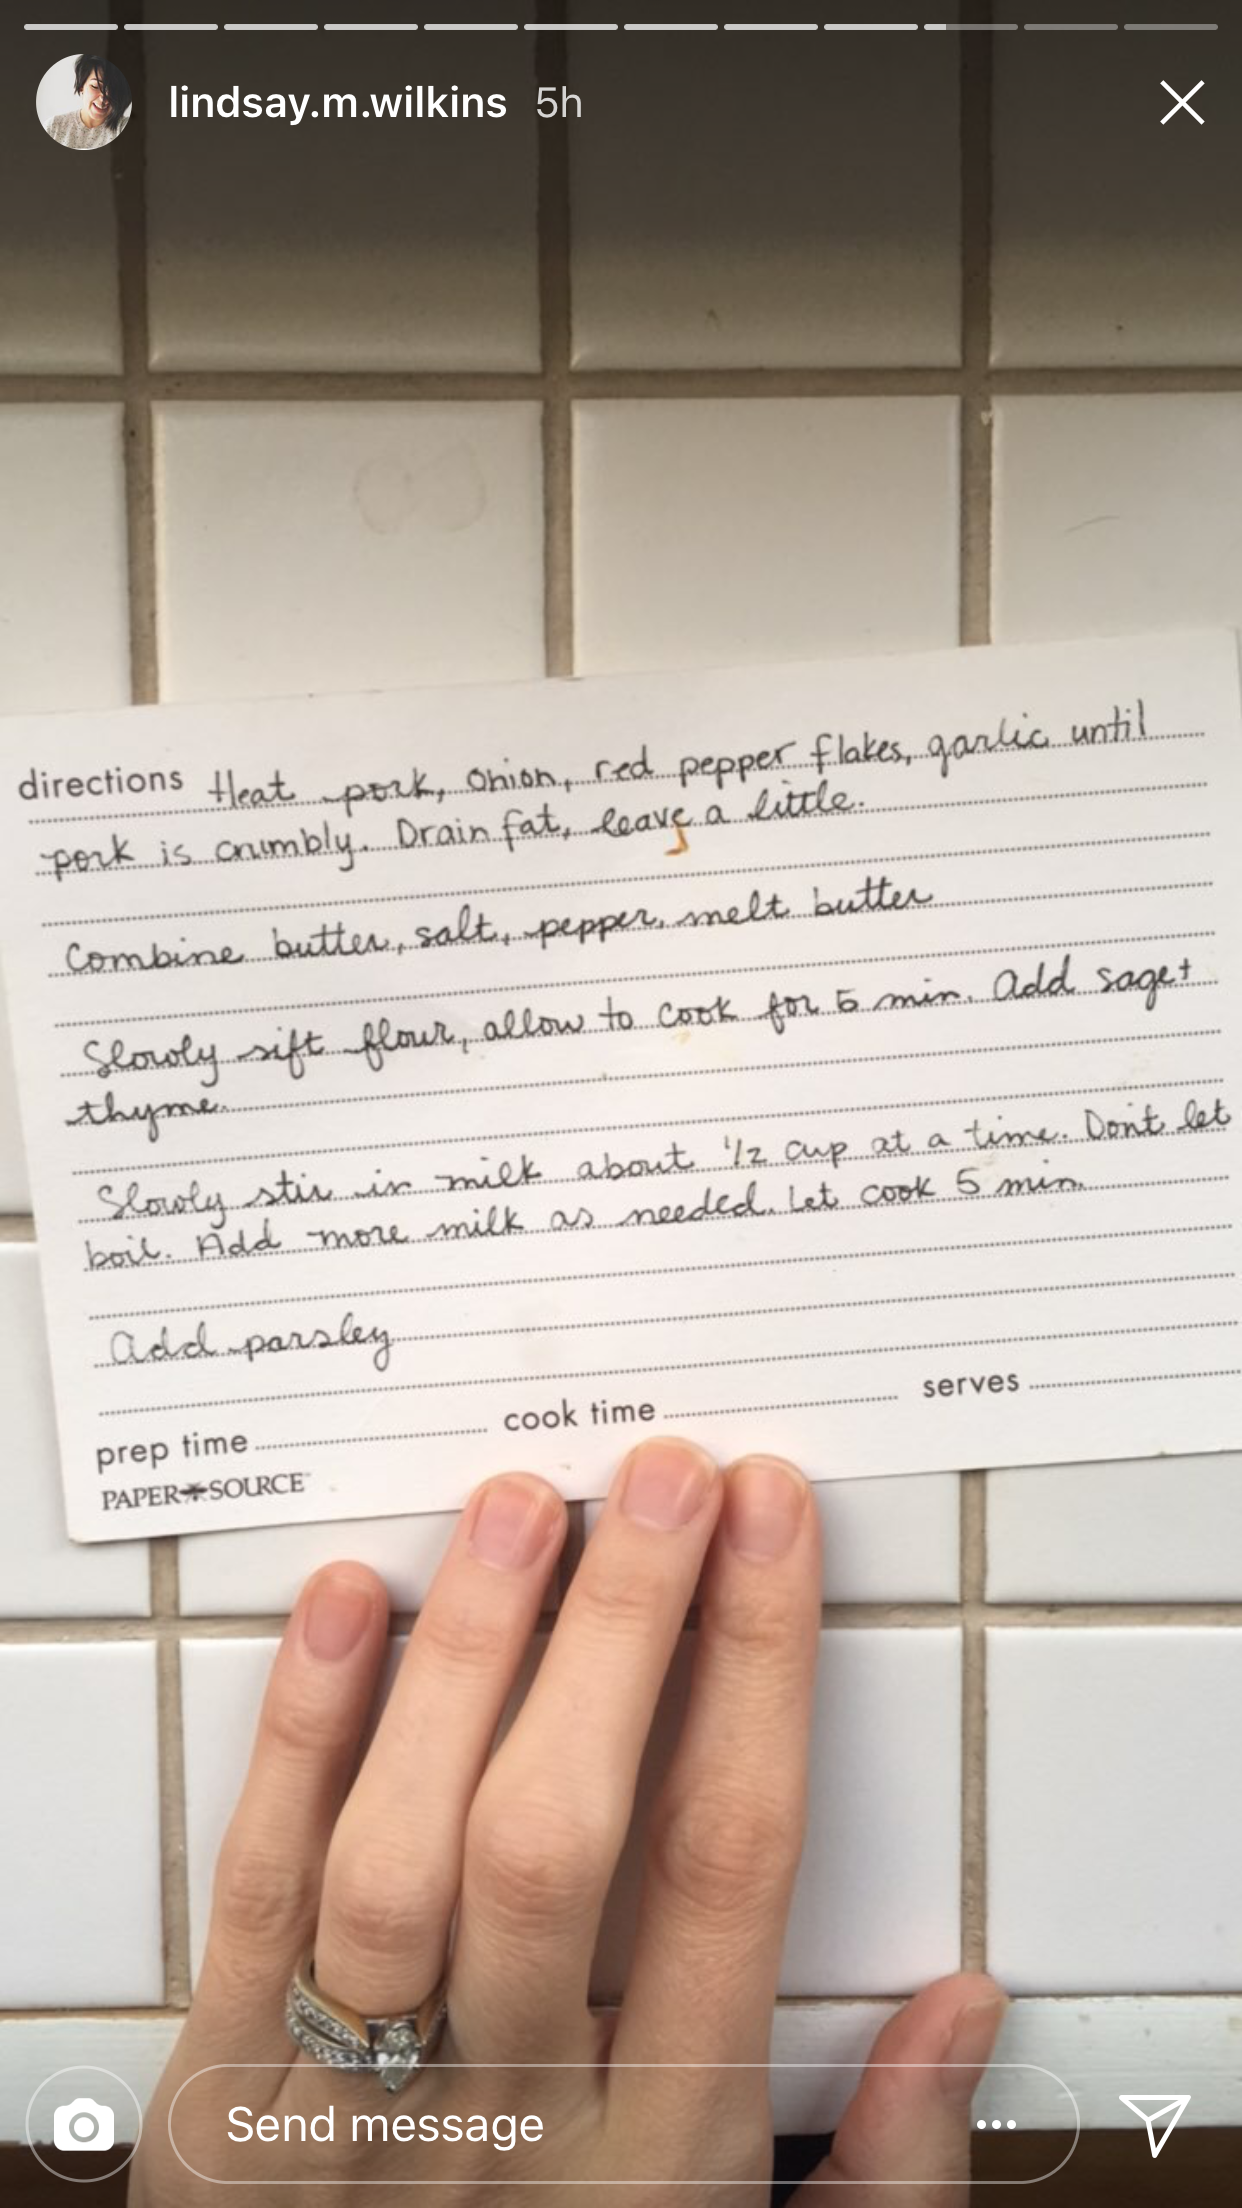 lindsay.m.wilkins 5h
directions Heat pork, onion, red pepper flakes, garlic until
pork is crumbly. Drain fat, leave a little.
Combine butter, salt, pepper, melt butter
Slowly sift flour, allow to cook for 5 min. Add sage +
thyme.
Slowly stir in milk about 1/2 cup at a time. Don't let
boil. Add more milk as needed. Let cook 5 min.
Add parsley
prep time cook time serves
PAPER SOURCE
Send message